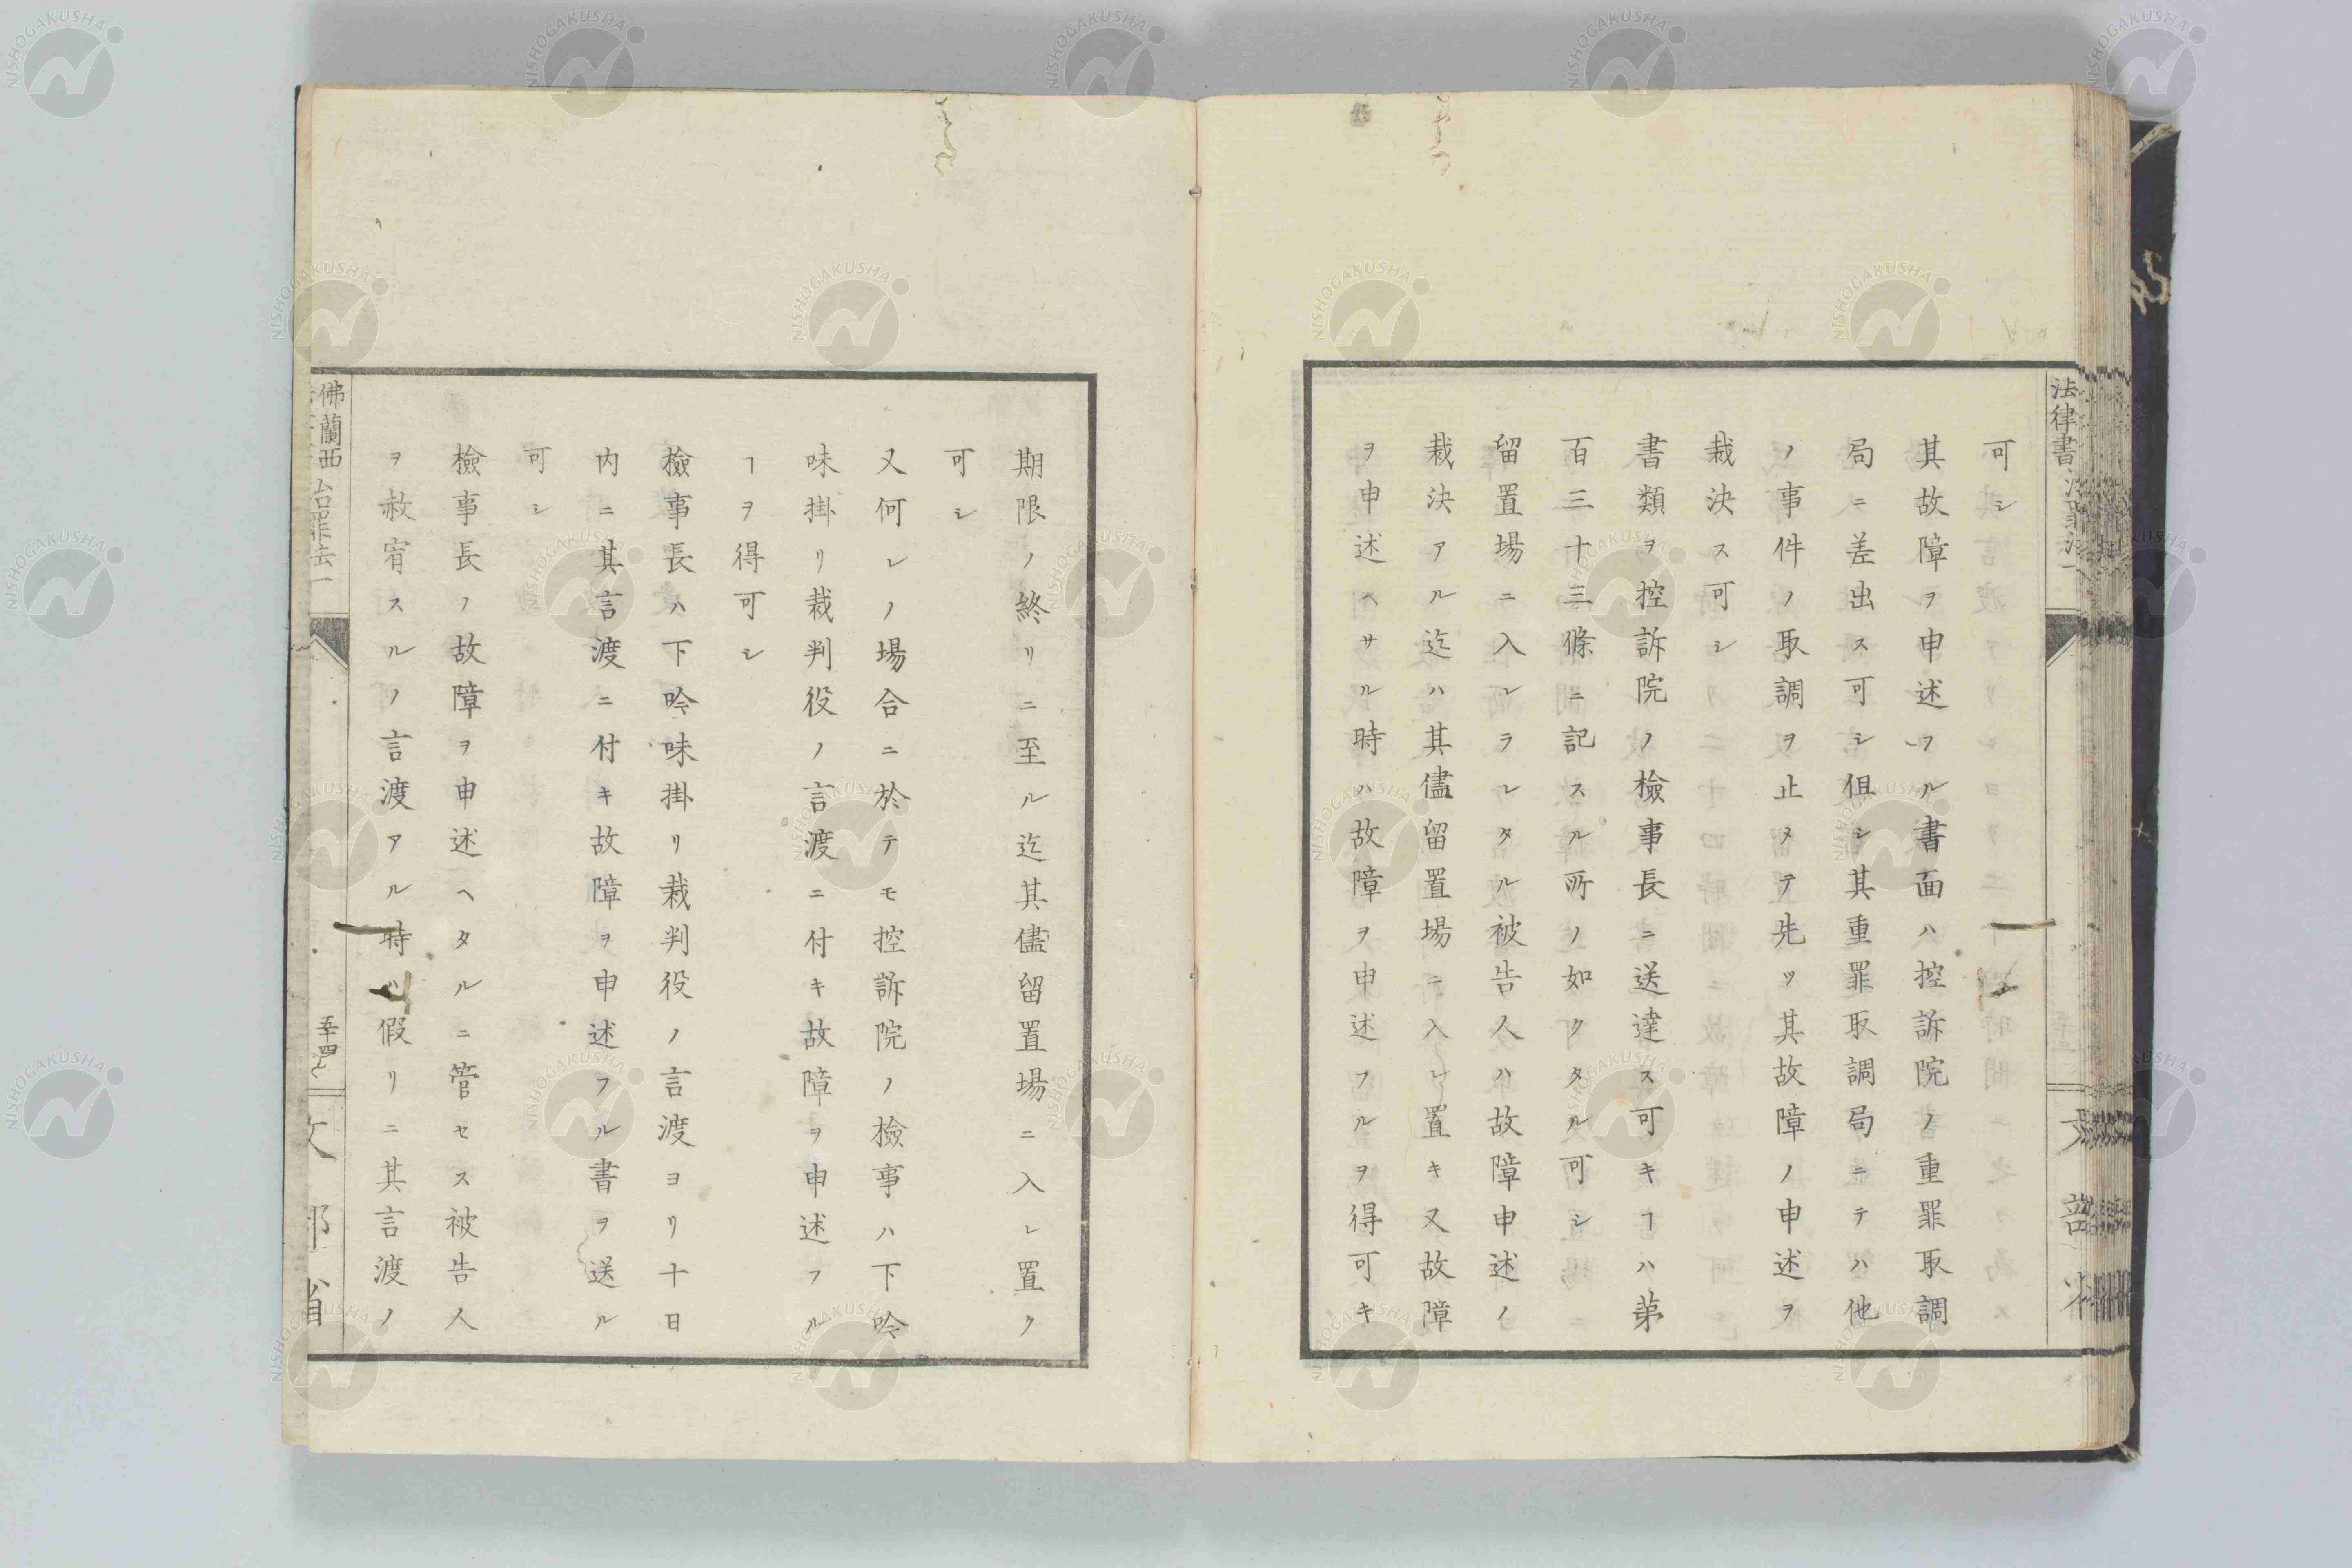 可シ
其故障ヲ申述フル書面ハ控訴院ノ重罪取調
局ニ差出ス可シ但シ其重罪取調局ニテハ他
ノ事件ノ取調ヲ止メテ先ツ其故障ノ申述ヲ
裁決ス可シ
書類ヲ控訴院ノ檢事長ニ送達ス可キヿハ第
百三十三條ニ記スル所ノ如クタル可シ
留置場ニ入レラレタル被告人ハ故障申述ノ
裁決アル迄ハ其儘留置場ニ入レ置キ又故障
ヲ申述ヘサル時ハ故障ヲ申述フルヲ得可キ
期限ノ終リニ至ル迄其儘留置場ニ入レ置ク
可シ
又何レノ場合ニ於テモ控訴院ノ檢事ハ下吟
味掛リ裁判役ノ言渡ニ付キ故障ヲ申述フル
ヿヲ得可シ
檢事長ハ下吟味掛リ裁判役ノ言渡ヨリ十日
内ニ其言渡ニ付キ故障ヲ申述フル書ヲ送ル
可シ
檢事長ノ故障ヲ申述ヘタルニ管セス被告人
ヲ赦宥スルノ言渡アル時ハ假リニ其言渡ノ
法律書
佛蘭西治罪法一
五十四
文部省
NISHOGAKUSHA